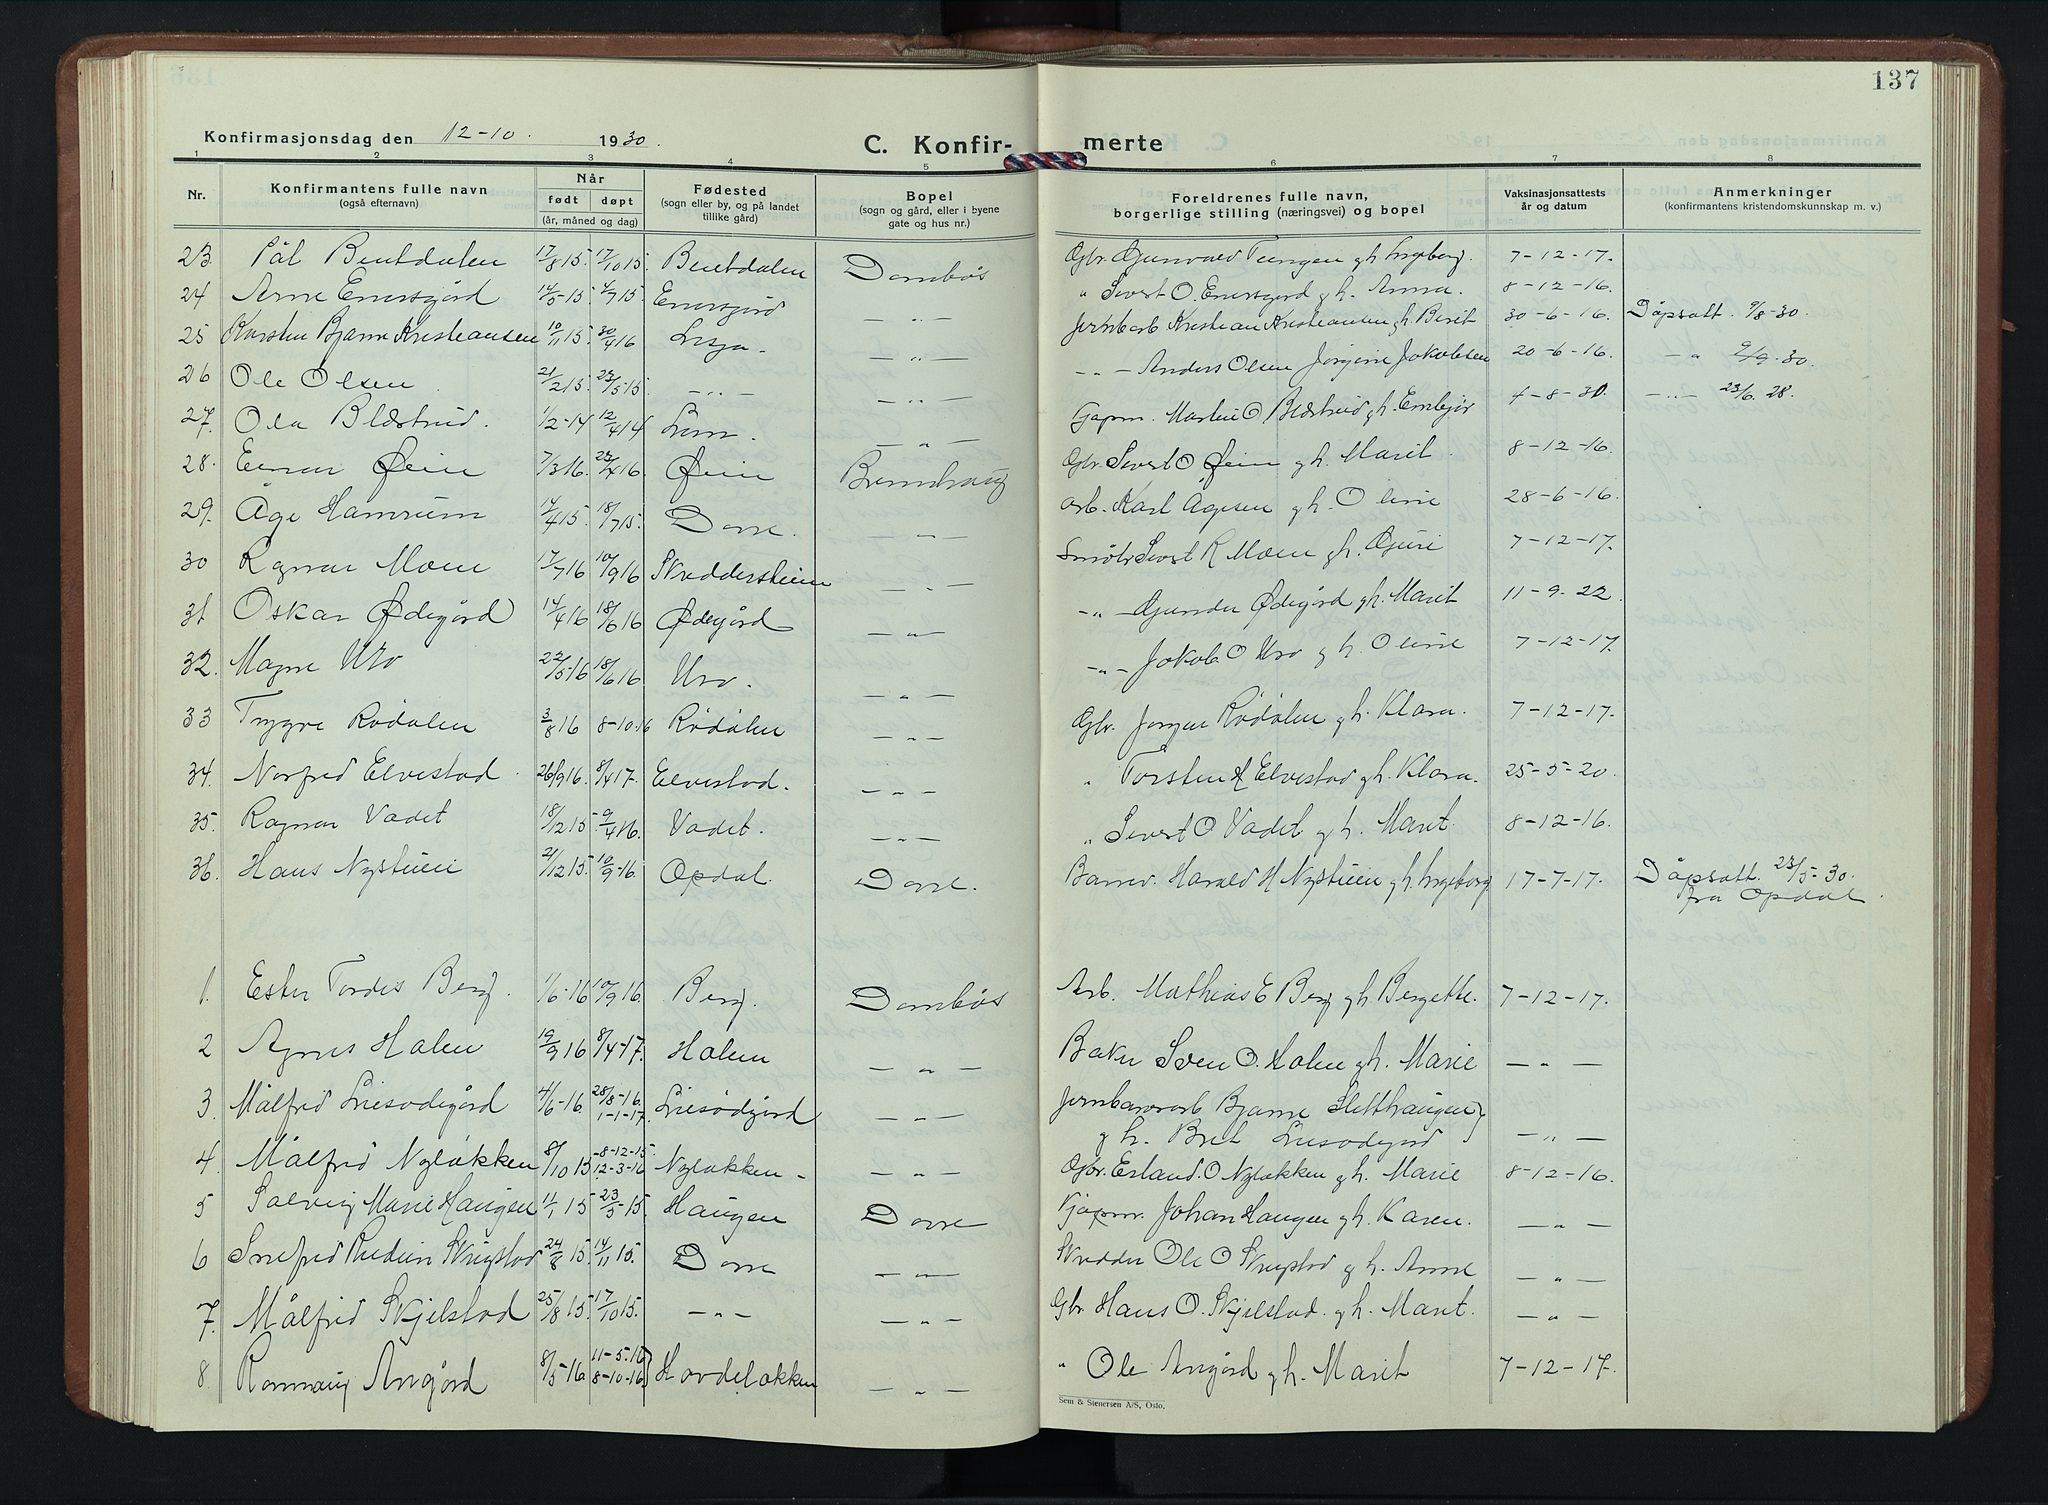 137
Konfirmasjonsdag den 12-10. 1930.
C. Konfir- merte
1 2 3 4 5 6 7 8
Nr.
Konfirmantens fulle navn
(også efternavn)
Når
født døpt
(år, måned og dag)
Fødested
(sogn eller by, og på landet
tillike gård)
Bopel
(sogn og gård, eller i byene
gate og hus nr.)
Foreldrenes fulle navn,
borgerlige stilling (næringsvei) og bopel
Vaksinasjonsattests
år og datum
Anmerkninger
(konfirmantens kristendomskunnskap m. v.)
23 Pål Bentdalen 17/8 15. 17/10 15. Bentdalen Dombås Gbr. Gunvald Tungen g h. Ingeborg. 7-12-17.
24 Arne Enersgård 14/5-15 4/7 15. Enersgård — „ — „ Sivert O. Enersgård g h. Anna. 8-12-16.
25 Karsten Bjarne Kristiansen 10/11 15. 30/4 16 Lesja — „ — Jernb arb Kristian Kristiansen g h. Berit 30-6-16. Dåpsatt. 9/8-30.
26 Ole Olsen 21/2 15. 23/5-15 — „ — — „ — — „ — Anders Olsen Jørgine Jakobsen 20-6-16. — „ 9/9-30.
27. Ola Blæstrud. 1/2-14 12/4 14 Lom. — „ — Gapm. Martin O Blæstrud g h. Embjør 4-8-30. — „ — 23/6. 28.
28. Einar Øein 7/3 16. 23/4 16. Øein Brennhaug Gbr. Sivert O Øein g h. Marit. 8-12-16.
29. Åge Hamrum 14/4 15. 18/7 15. Dovre. — „ — Arb. Karl Ågesen g h. Oline 28-6-16.
30 Ragnar Moen 17/7 16 10/9 16 Skreddersteien — „ — Småbr Sivert K Moen g h. Guri 7-12-17.
31 Oskar Ødegård 14/4 16 18/6 16 Ødegård — „ — — „ — Gunder Ødegård g h. Marit 11-9-22.
32. Magne Uro 22/5-16 18/6 16 Uro. — „ — — „ — Jakob O Uro g h. Oline 7-12-17.
33 Trygve Rødalen 3/8 16 8-10-16 Rødalen — „ — Gbr. Jørgen Rødalen g h. Klara. 7-12-17.
34. Norfred Elvestad. 26/9 16. 8/4 17. Elvestad. — „ — „ Torsten Elvestad g h. Klara. 25-5-20.
35. Ragnar Vadet 18/12 15. 9/4 16. Vadet. — „ — „ Sivert O Vadet g h. Marit. 8-12-16.
36. Hans Nystuen 21/12 15. 10/9-16. Opdal. Dovre. Banev. Harald H Nystuen g h. Ingeborg 17-7-17. Dåpsatt. 23/5-30.
fra Opdal.
1. Ester Tordis Berg. 1/6-16 10/9 16. Berg. Dombås Arb. Mathias E Berg g h. Bergette. 7-12-17.
2 Agnes Holen 19/9 16 8/4-17. Holen — „ — Baker Sven O. Holen g h. Marie — „ —
3. Målfrid Liesødegård 4/6-16 28/8-16. Liesødgård — „ — Jernbanearb Bjarne Sletthaugen
1-1-17. g h. Brit Liesødegård — „ —
4. Målfrid Nyløkken 8/10 15 -8-12-15. Nyløkken — „ — Gbr. Erland. O Nyløkken g h. Marie 8-12-16.
12-3-16
5 Solveig Marie Haugen 11/1 15 23/5-15. Haugen Dovre Kjøpm. Johan Haugen g h. Karen. — „ —
6 Snefrid Skrigstad 24/8 15. 14/11 15. Dovre — „ — Skredder Ole O Skrigstad g h. Anne — „ —
7. Målfrid Skjelstad 25/8 15. 17/10 15. — „ — — „ — Gbr. Hans O. Skjelstad. g h. Marit. — „ —
8. Rannaug Angård 8/5-16 11-5-16 Hovdeløkken — „ — „ Ole Angård g h. Marit 7-12-17.
8-10-16
Sem & Stenersen A/S, Oslo.